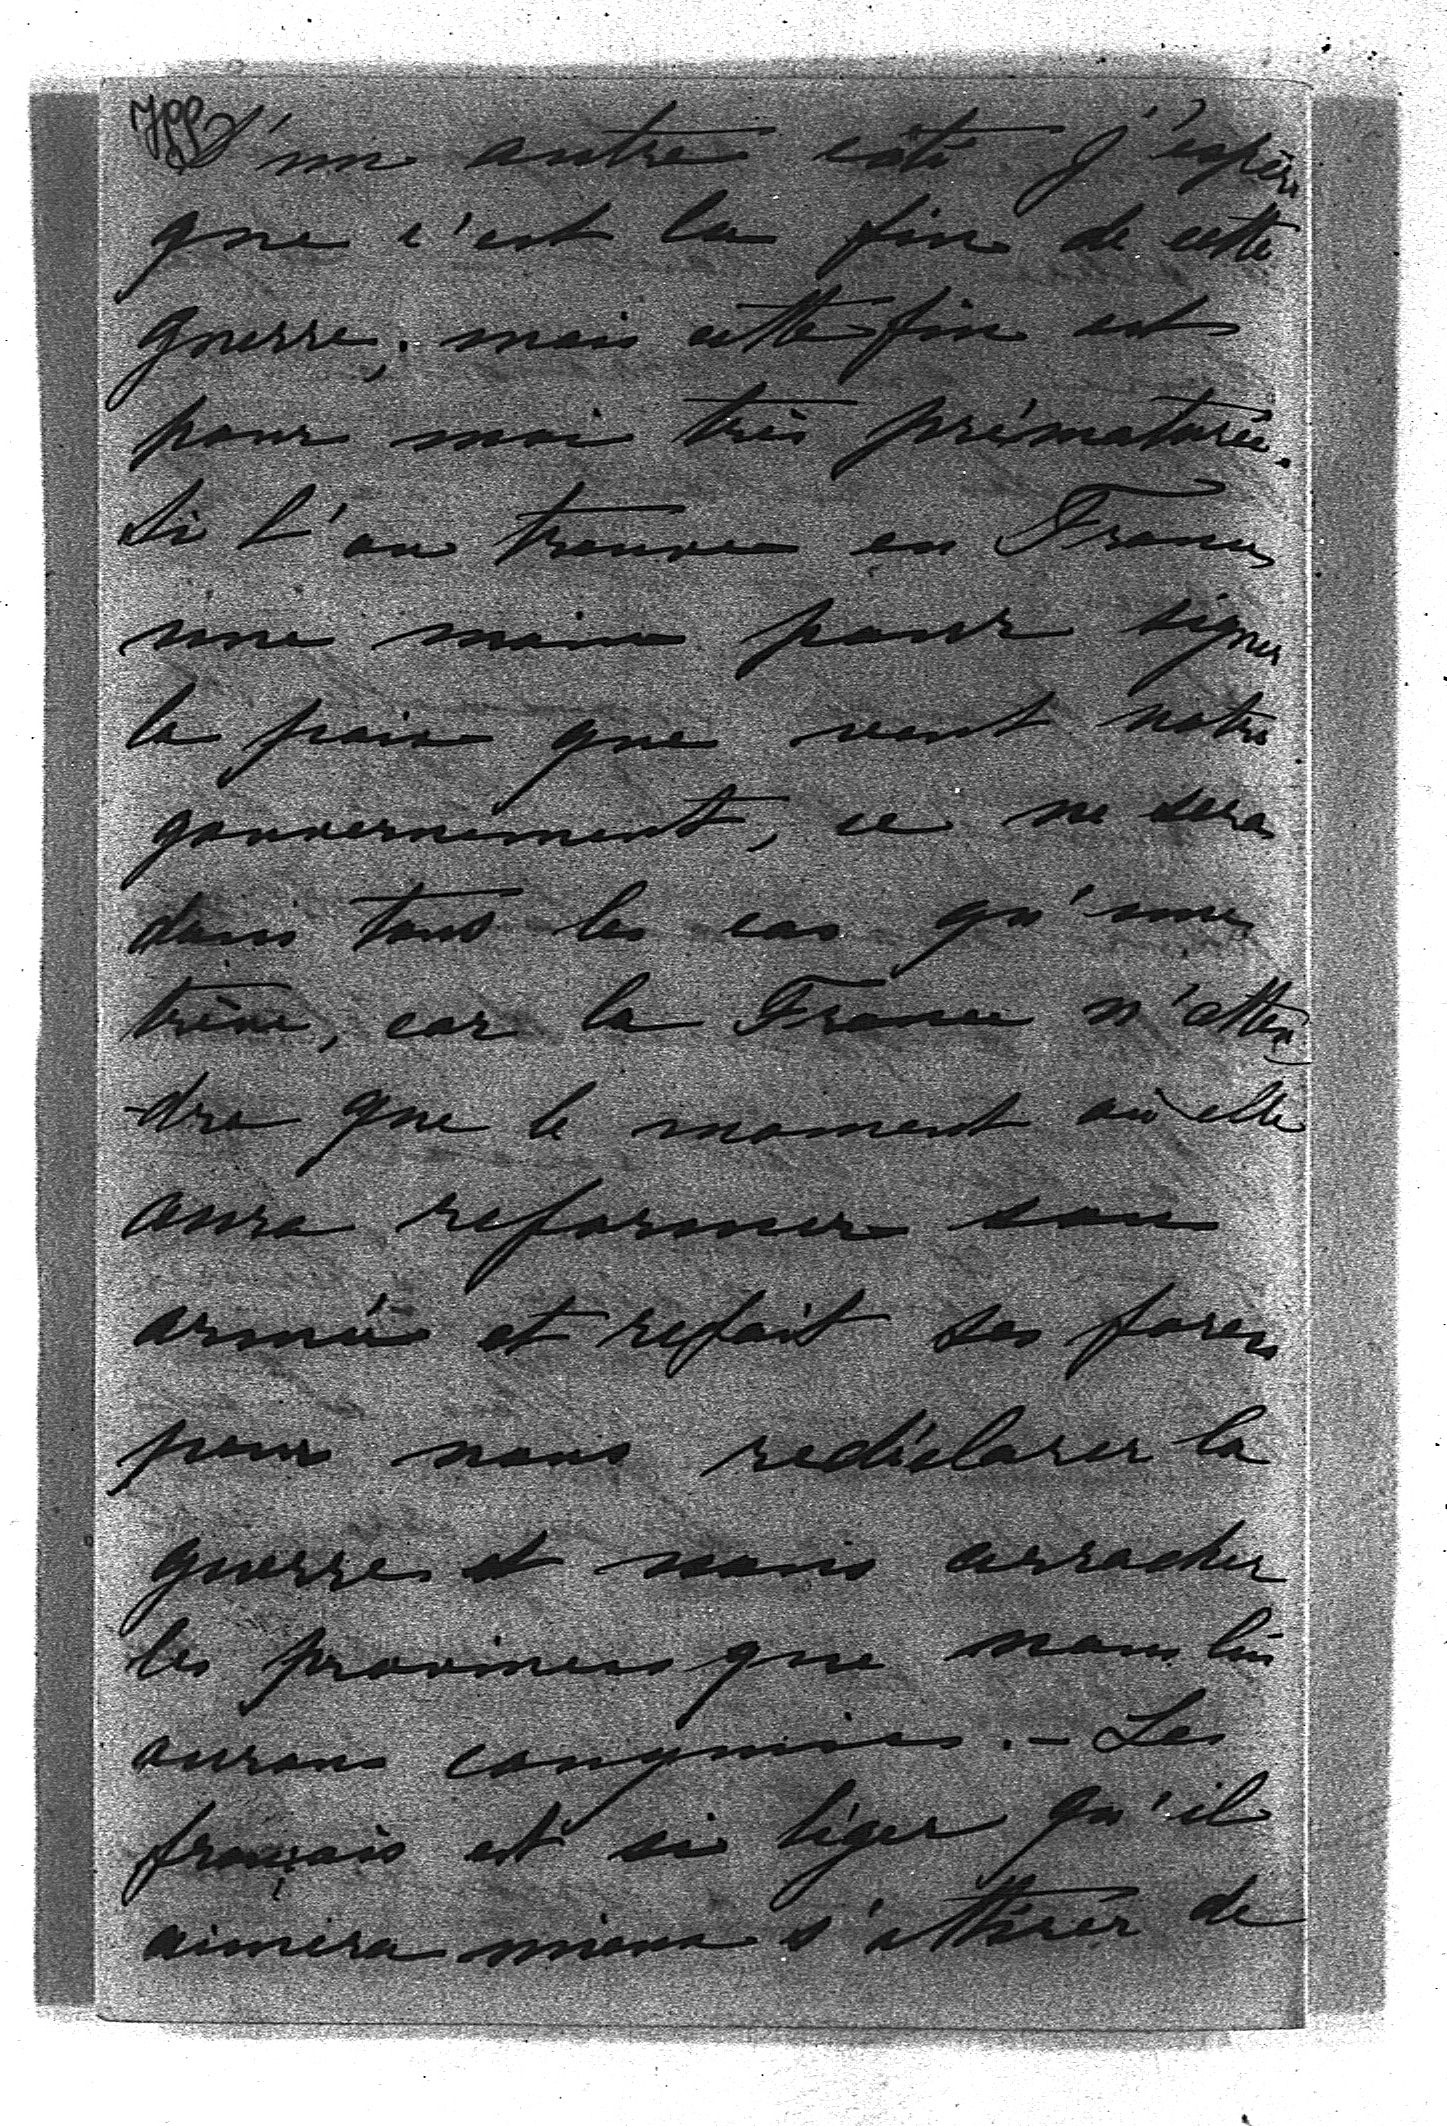 D'un autre côté j'espère
que c'est la fin de cette
guerre, mais cette fin est
pour moi très prématurée.
Si l'on trouve en France
une main pour signer
la paix que veut notre
gouvernement, ce ne sera
dans tous les cas qu'une
trève, car la France n'atten
-dra que le moment où elle
aura reformer son
armée et refait ses forces
pour nous redéclarer la
guerre et nous arracher
les provinces que nous lui
aurons conquises. - Les
français est si léger qu'il
aimera mieux s'attirer de